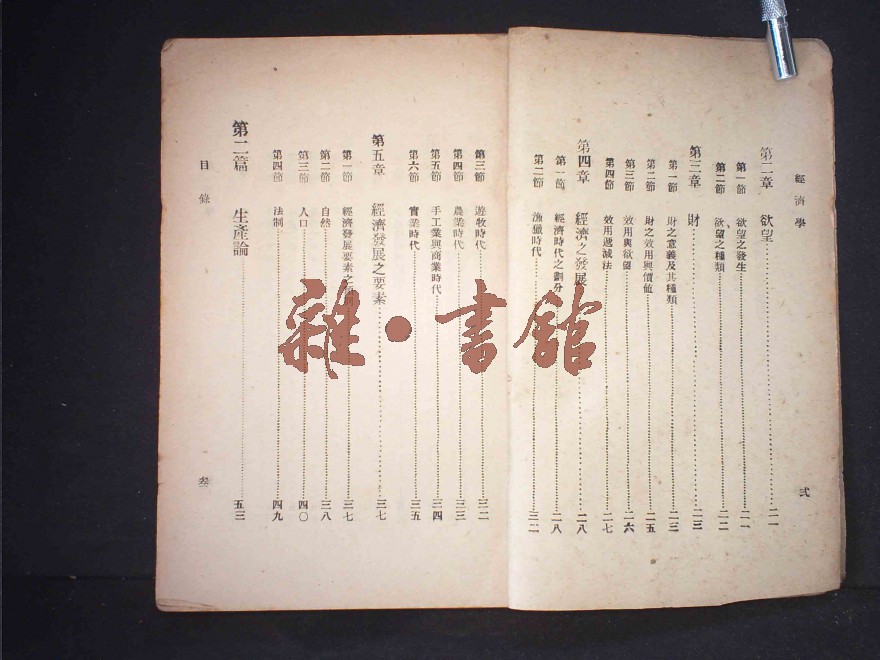 經濟學
第二章 欲望 二一
第一節 欲望之發生 二一
第二節 欲望之種類 二二
第三章 財 二三
第一節 財之意義及其種類 二三
第二節 財之效用與價值 二五
第三節 效用與欲望 二六
第四節 效用遞減法 二七
第四章 經濟之發展 二八
第一節 經濟時代之劃分 二八
第二節 漁獵時代 三二
弍
第三節 遊牧時代 三二
第四節 農業時代 三三
第五節 手工業與商業時代 三四
第六節 實業時代 三五
第五章 經濟發展之要素 三七
第一節 經濟發展要素之 三七
第二節 自然 三八
第三節 人口 四〇
第四節 法制 四九
第二篇 生產論 五三
目錄
叁
雜·書館